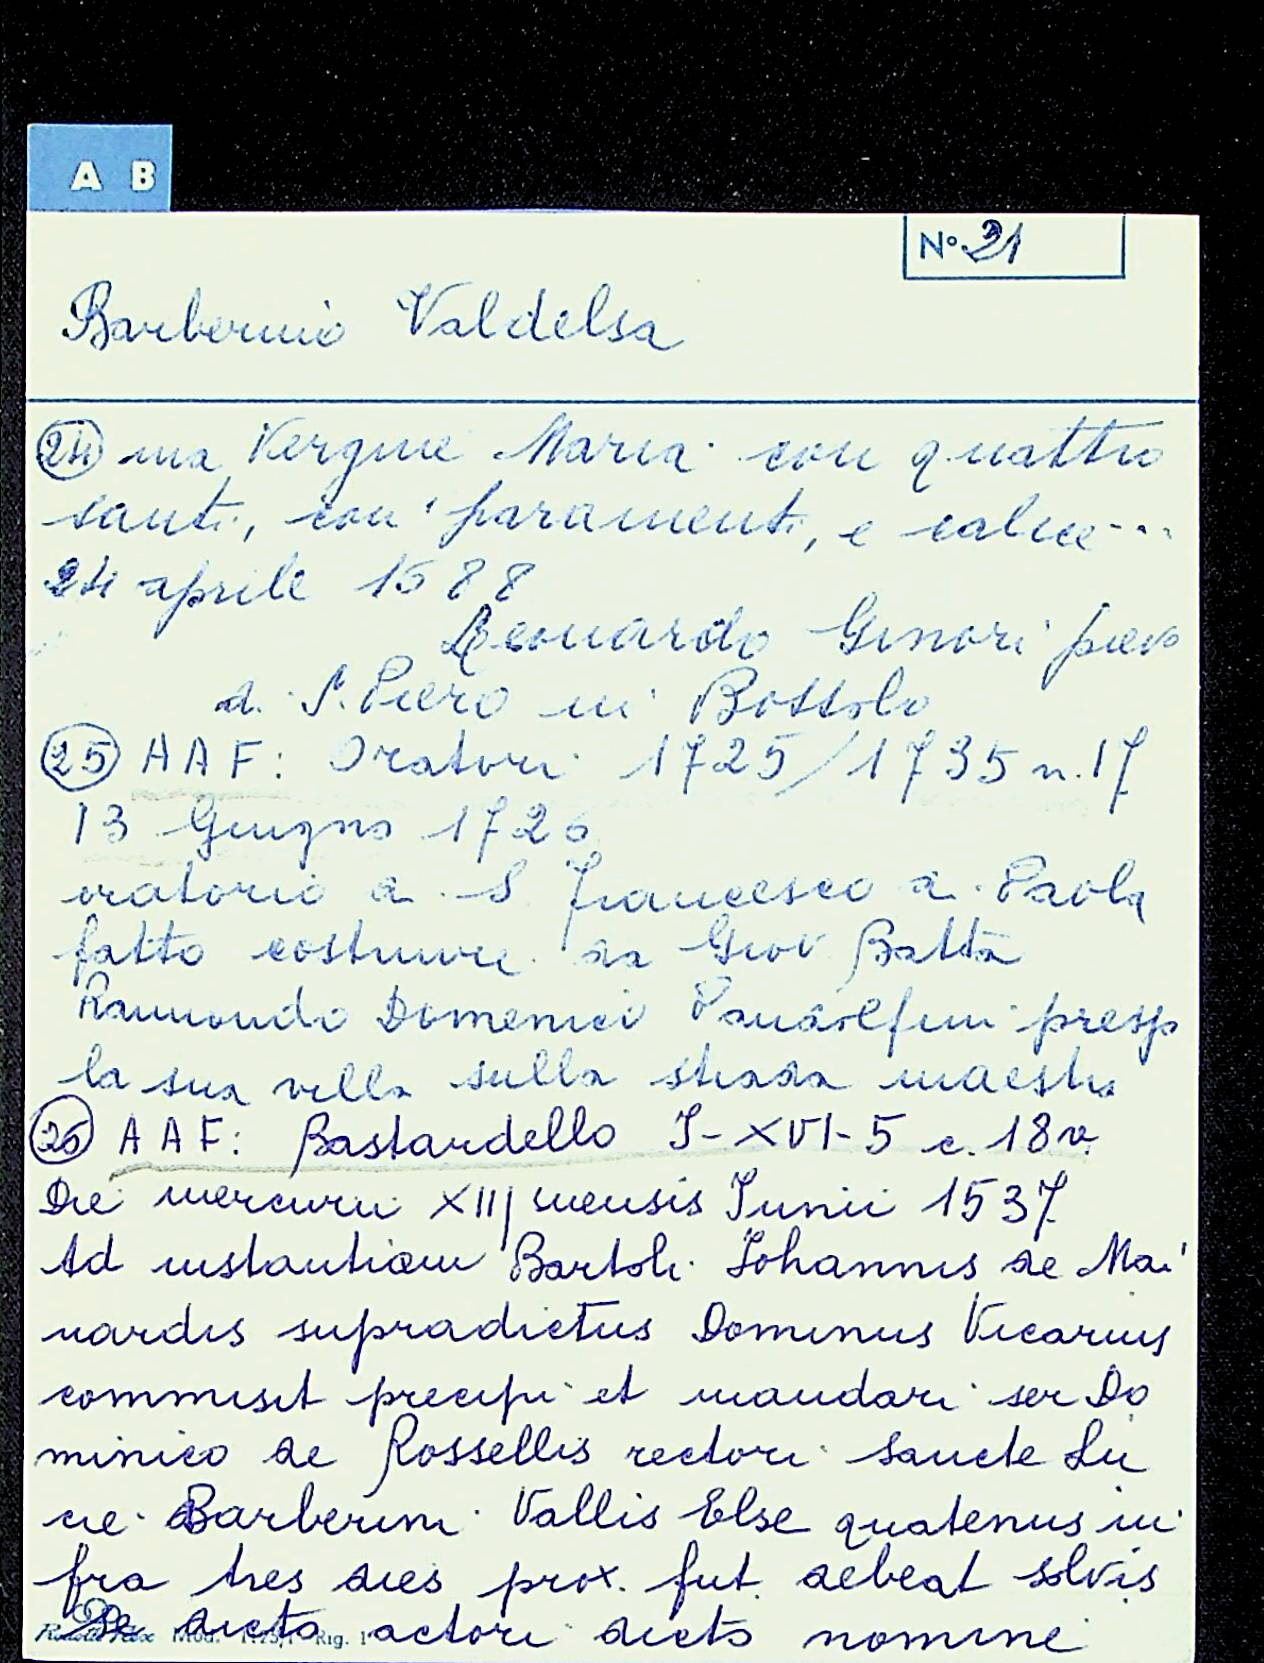 A B
N° 21
Barberino Valdelsa
24 una Vergine Maria con quattro
santi, con paramenti, e calice...
24 aprile 1588
Leonardo Ginori pievo
di S. Piero in Bossolo
25 AAF: Oratori 1725/1735 n. 17
13 Giugno 1726
oratorio di S Francesco di Paola
fatto costruire da Giov Batta
Raimondo Domenici Pandolfini presso
la sua villa sulla strada maestra
26 AAF: Bastardello I-XVI-5 c. 18v.
Die mercurii XIII mensis Junii 1537
Ad instantiam Bartoli Johannis de Mai
nardis supradictus Dominus Vicarius
commisit precipi et mandari ser Do
minico de Rossellis rectori Sancte Lu
cie Barberini Vallis Else quatenus in
fra tres dies prox. fut. debeat solvis
se dicto actori dicto nomine
Rig. 1